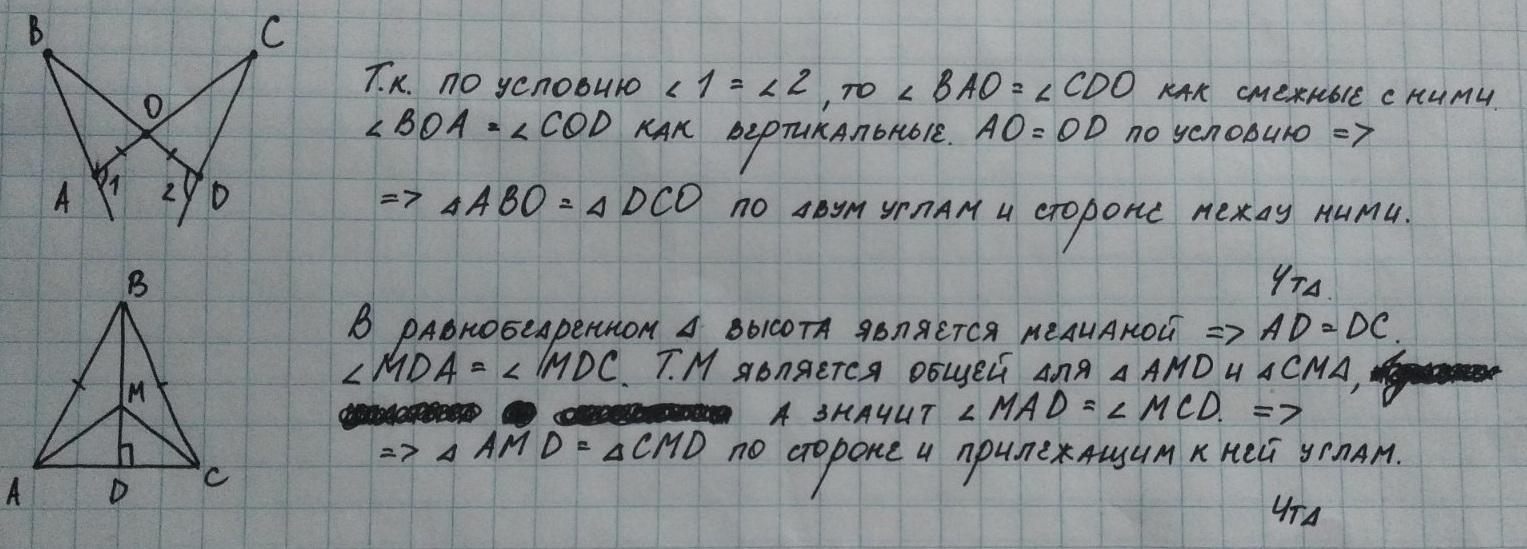 B
C
O
A
1
2
D
Т.к. по условию ∠1 = ∠2, то ∠BAO = ∠CDO как смежные с ними.
∠BOA = ∠COD как вертикальные. AO = OD по условию =>
=> ΔABO = ΔDCO по двум углам и стороне между ними.
Чтд.
B
M
A
D
C
В равнобедренном Δ высота является медианой => AD = DC.
∠MDA = ∠MDC. Т.М является общей для ΔAMD и ΔCMД,
А значит ∠MAD = ∠MCD. =>
=> ΔAMD = ΔCMD по стороне и прилежащим к ней углам.
Чтд